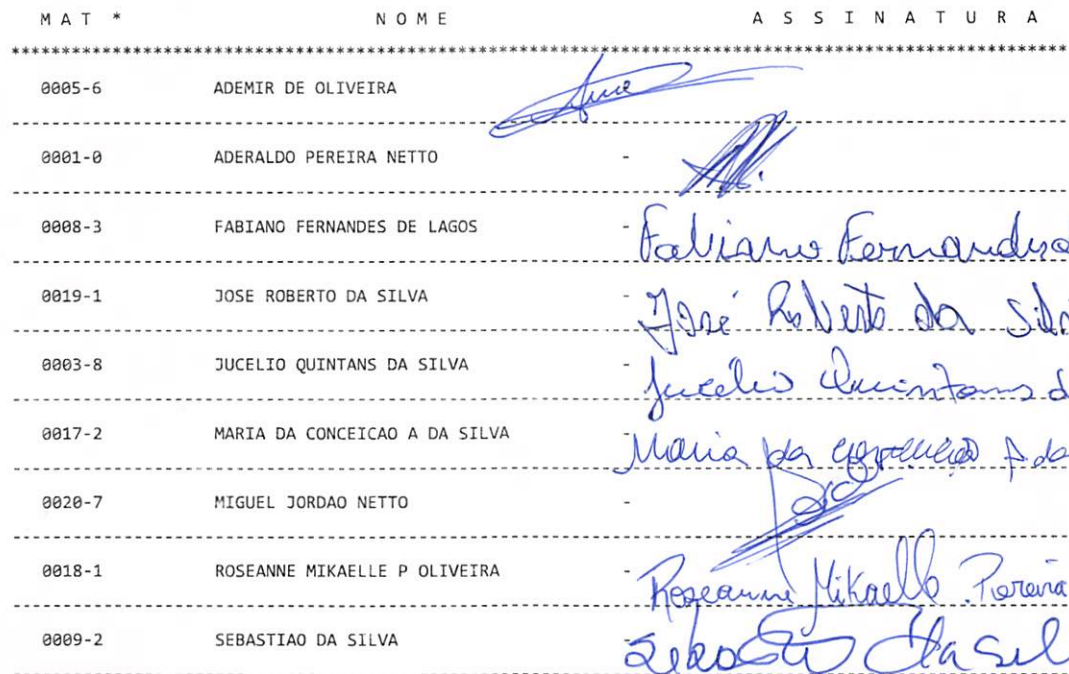 M A T * N O M E A S S I N A T U R A
******************************************************************************************
0005-6 ADEMIR DE OLIVEIRA
0001-0 ADERALDO PEREIRA NETTO -
0008-3 FABIANO FERNANDES DE LAGOS - Fabiano Fernandes d
0019-1 JOSE ROBERTO DA SILVA - José Roberto da Silv
0003-8 JUCELIO QUINTANS DA SILVA Jucelio Quintans d
0017-2 MARIA DA CONCEICAO A DA SILVA - Maria da conceição A da
0020-7 MIGUEL JORDAO NETTO -
0018-1 ROSEANNE MIKAELLE P OLIVEIRA - Roseanne Mikaelle Pereira
0009-2 SEBASTIAO DA SILVA - da Sil